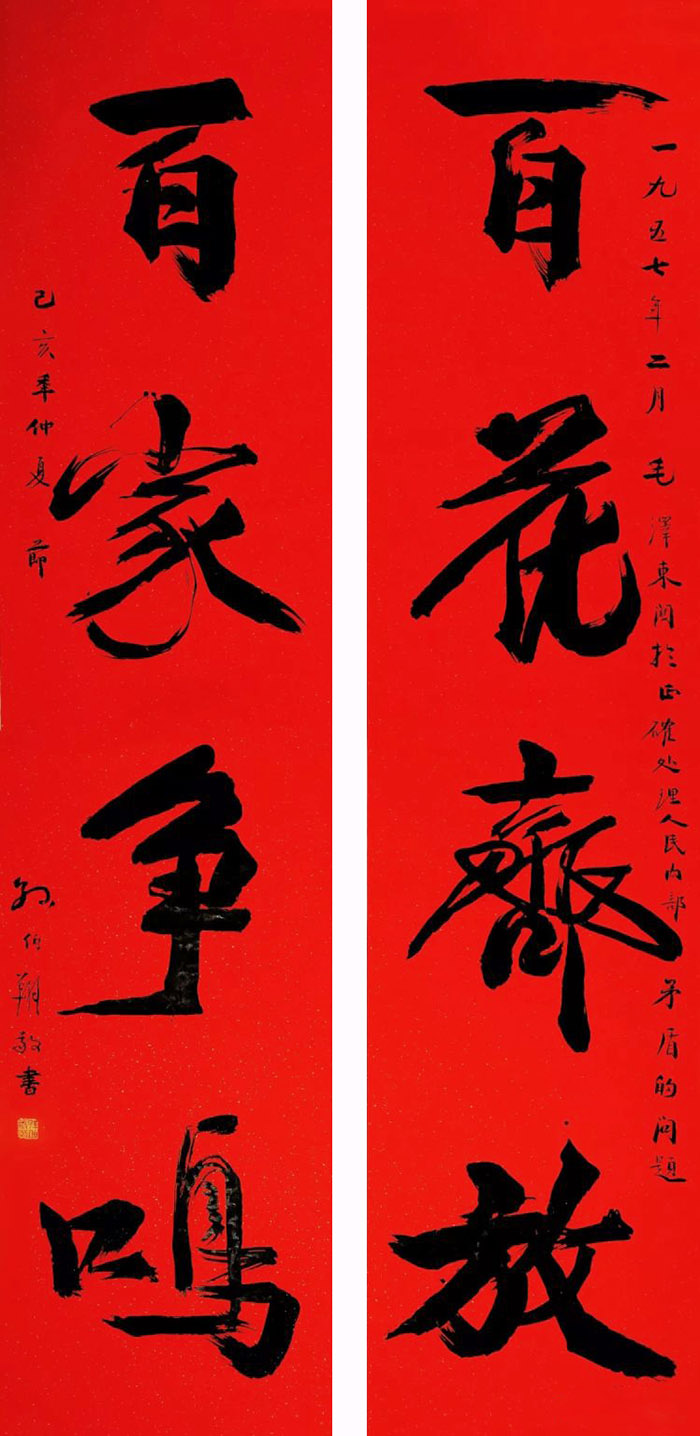 一九五七年二月毛澤東関於正確处理人民内部矛盾的问题
百花齊放
百家争鳴
己亥年仲夏節
孙伯翔敬書